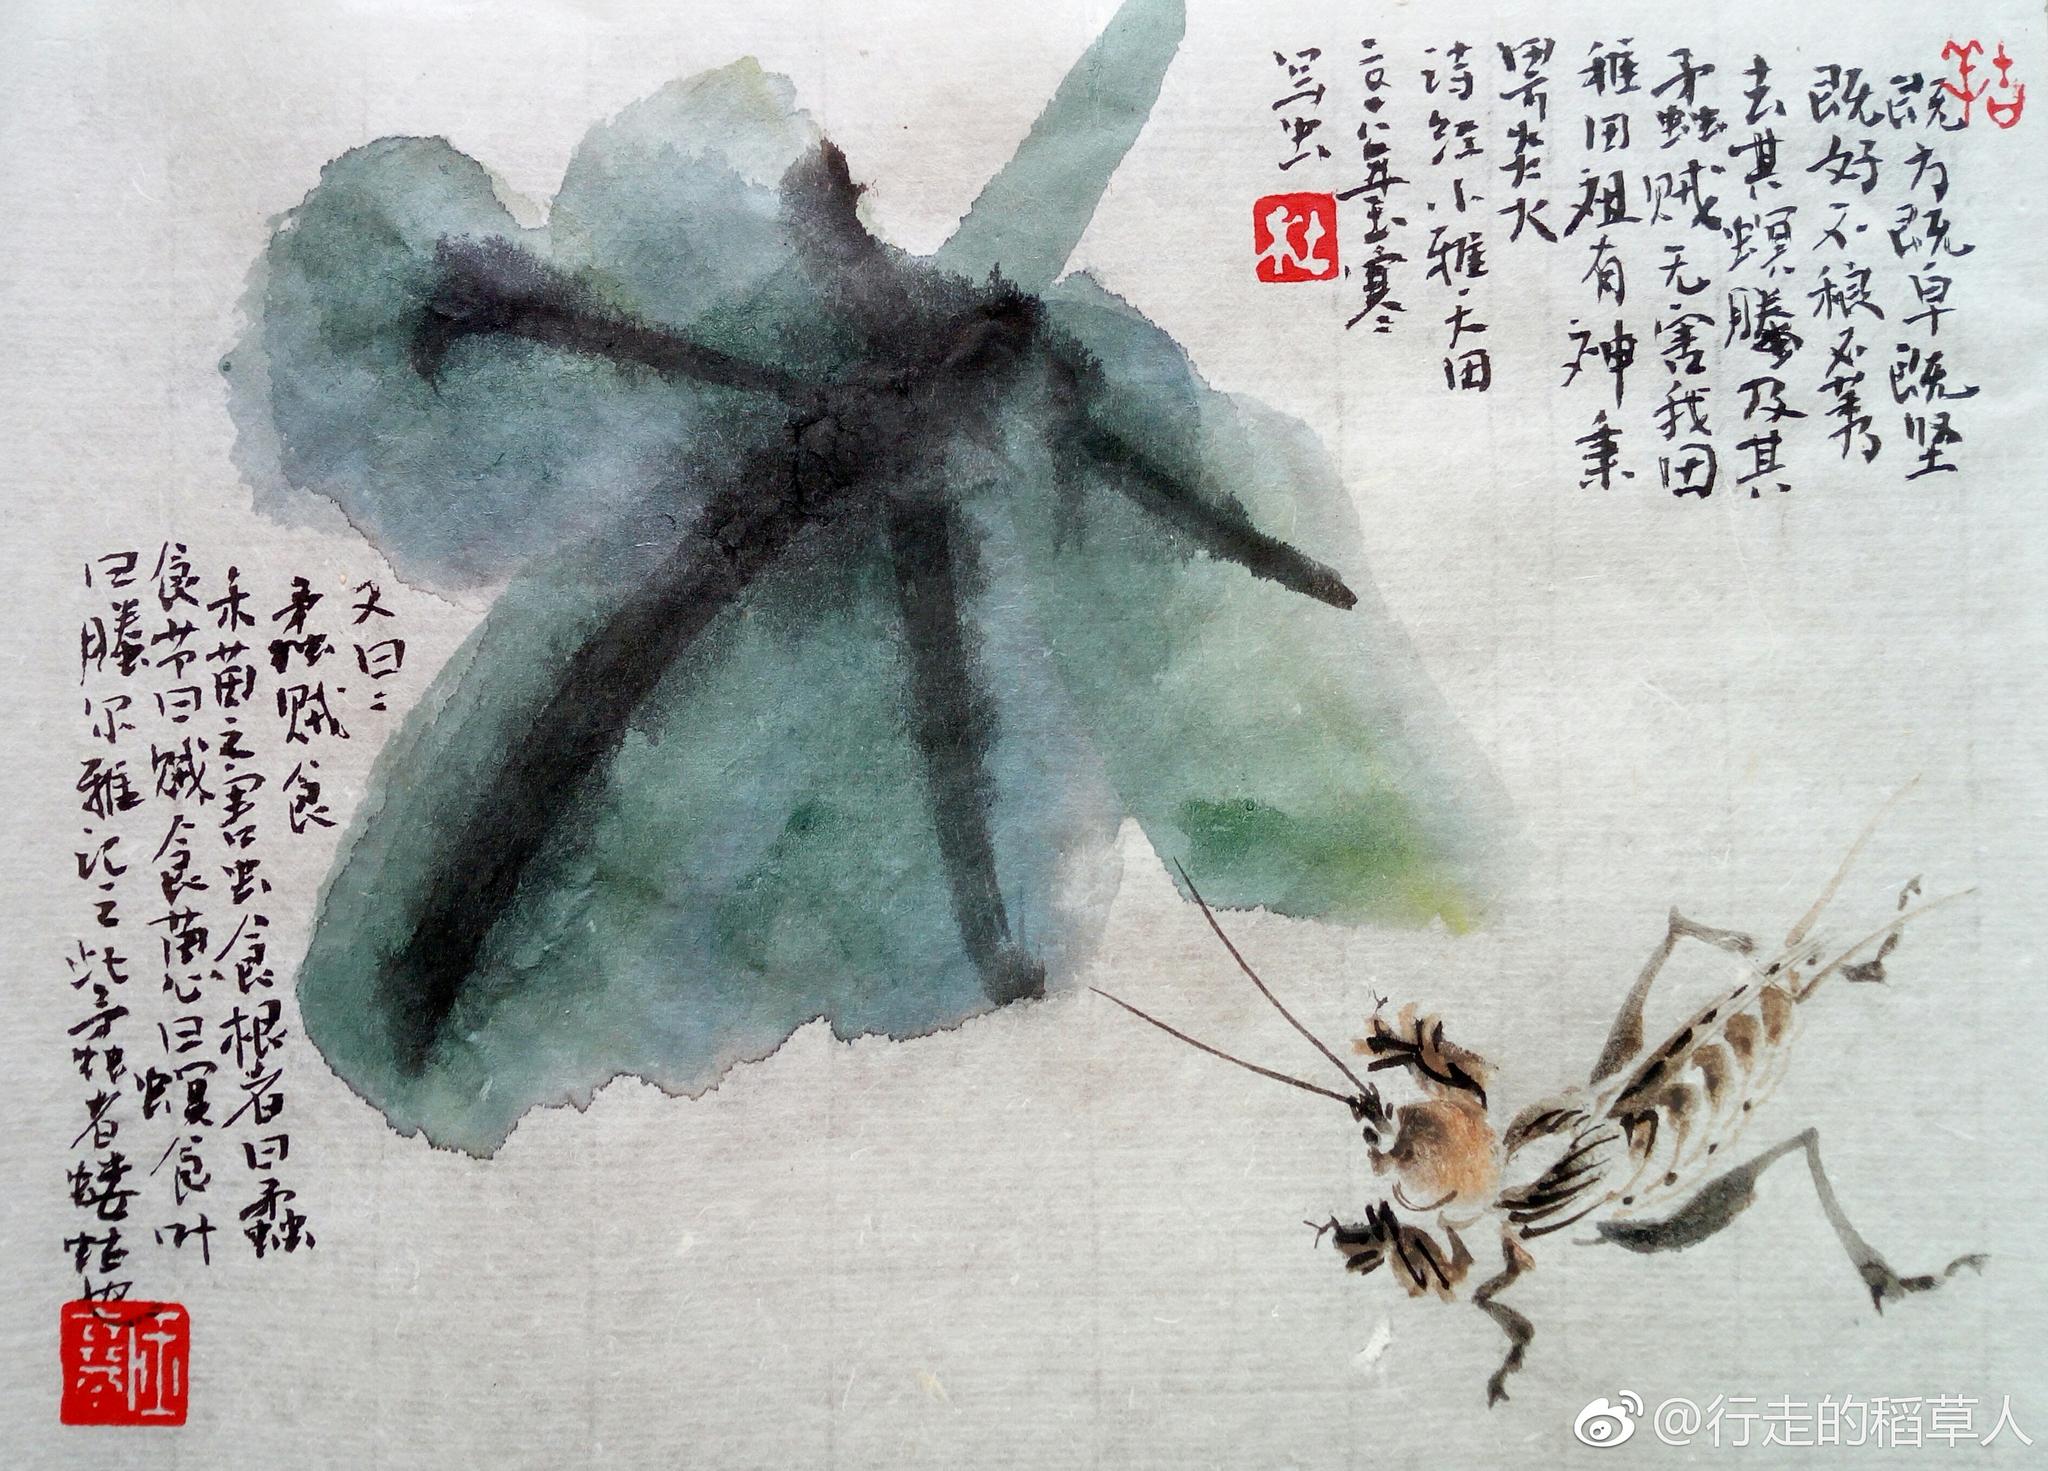 既方既皁既坚
既好不稂不莠
去其螟螣及其
蟊贼无害我田
稚田祖有神秉
畀炎火
诗经小雅大田
写虫
又曰:
蟊贼食
禾苗之害虫食根者曰蟊
食节曰贼食苗心曰螟食叶
曰螣尔雅记之此
者蝼蛄也
@行走的稻草人